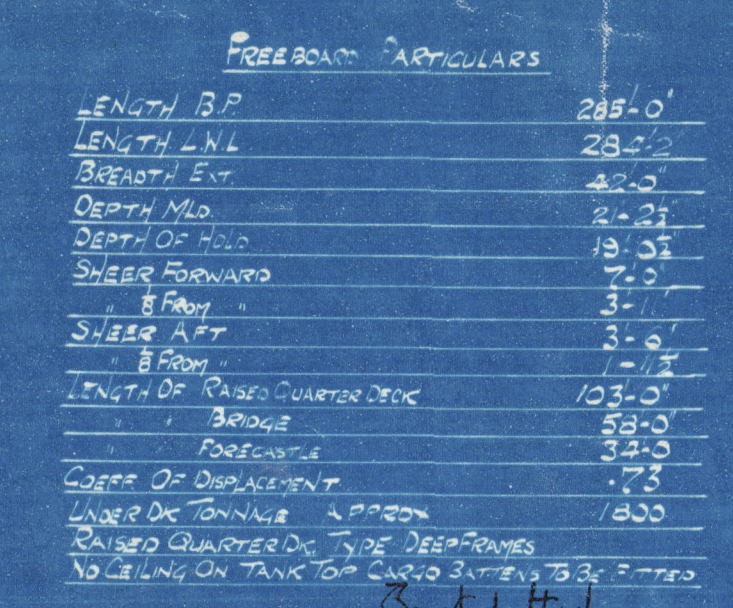 FREEBOARD PARTICULARS
LENGTH B.P. 285'-0"
LENGTH L.W.L 284'-2"
BREADTH EXT. 42'-0"
DEPTH MLD. 21'-2½"
DEPTH OF HOLD 19'-0½"
SHEER FORWARD 7'-0"
" ⅛ FROM " 3'-11"
SHEER AFT 3'-6"
" ⅛ FROM " 1'-11½"
LENGTH OF RAISED QUARTER DECK 103'-0"
" " BRIDGE 58'-0"
" " FORECASTLE 34'-0
COEFF. OF DISPLACEMENT .73
UNDER DK TONNAGE APPROX 1800
RAISED QUARTER DK. TYPE DEEP FRAMES
NO CEILING ON TANK TOP CARGO BATTENS TO BE FITTED